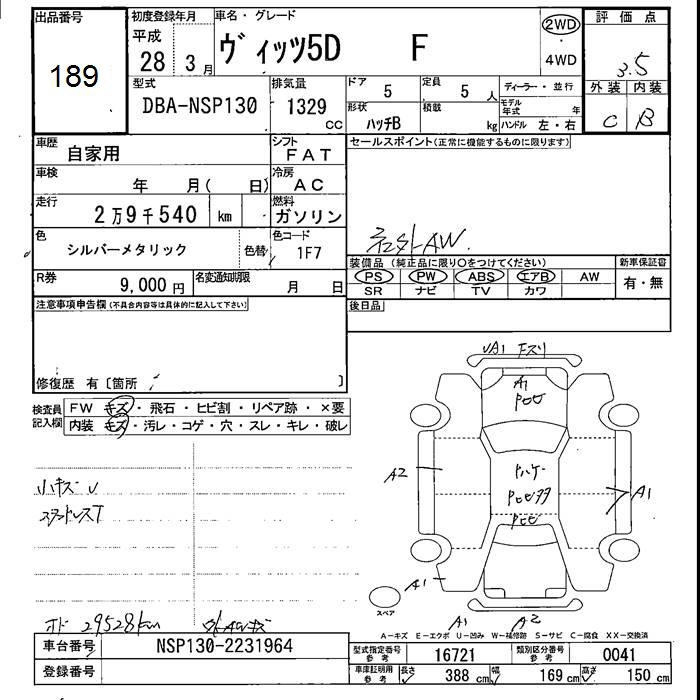 出品番号
189
初度登録年月
平成
28 3月
車名・グレード
ヴィッツ5D F
2WD
・
4WD
評価点
3.5
外装 内装
C B
型式
DBA-NSP130
排気量
1329
CC
ドア
5
定員
5 人
ディーラー・並行
モデル年式 年
形状
ハッチB
積載
kg
ハンドル 左・右
車歴
自家用
シフト
FAT
セールスポイント(正常に機能するものに限ります)
車検
年 月( 日)
冷房
AC
走行
2万9千540 km
燃料
ガソリン
社外AW.
色
シルバーメタリック
色替
色コード
1F7
装備品(純正品に限り○をつけてください)
PS PW ABS エアB AW
SR ナビ TV カワ
新車保証書
有・無
R券
9,000 円
名変通知期限
月 日
後日品
注意事項申告欄(不具合内容等は具体的に記入して下さい)
修復歴 有〔箇所 〕
検査員記入欄
FW キズ・飛石・ヒビ割・リペア跡・×要
内装 キズ・汚レ・コゲ・穴・スレ・キレ・破レ
小キズ U
スタッドレスT
A1
A1
A2
A1
A1
A1 A2
スペア
29528km
A－キズ E－エクボ U－凹み W－補修跡 S－サビ C－腐食 XX－交換済
車台番号
NSP130-2231964
型式指定番号
参考
16721
類別区分番号
参考
0041
登録番号
車庫証明用
参考
長さ 388 cm
幅 169 cm
高さ 150 cm